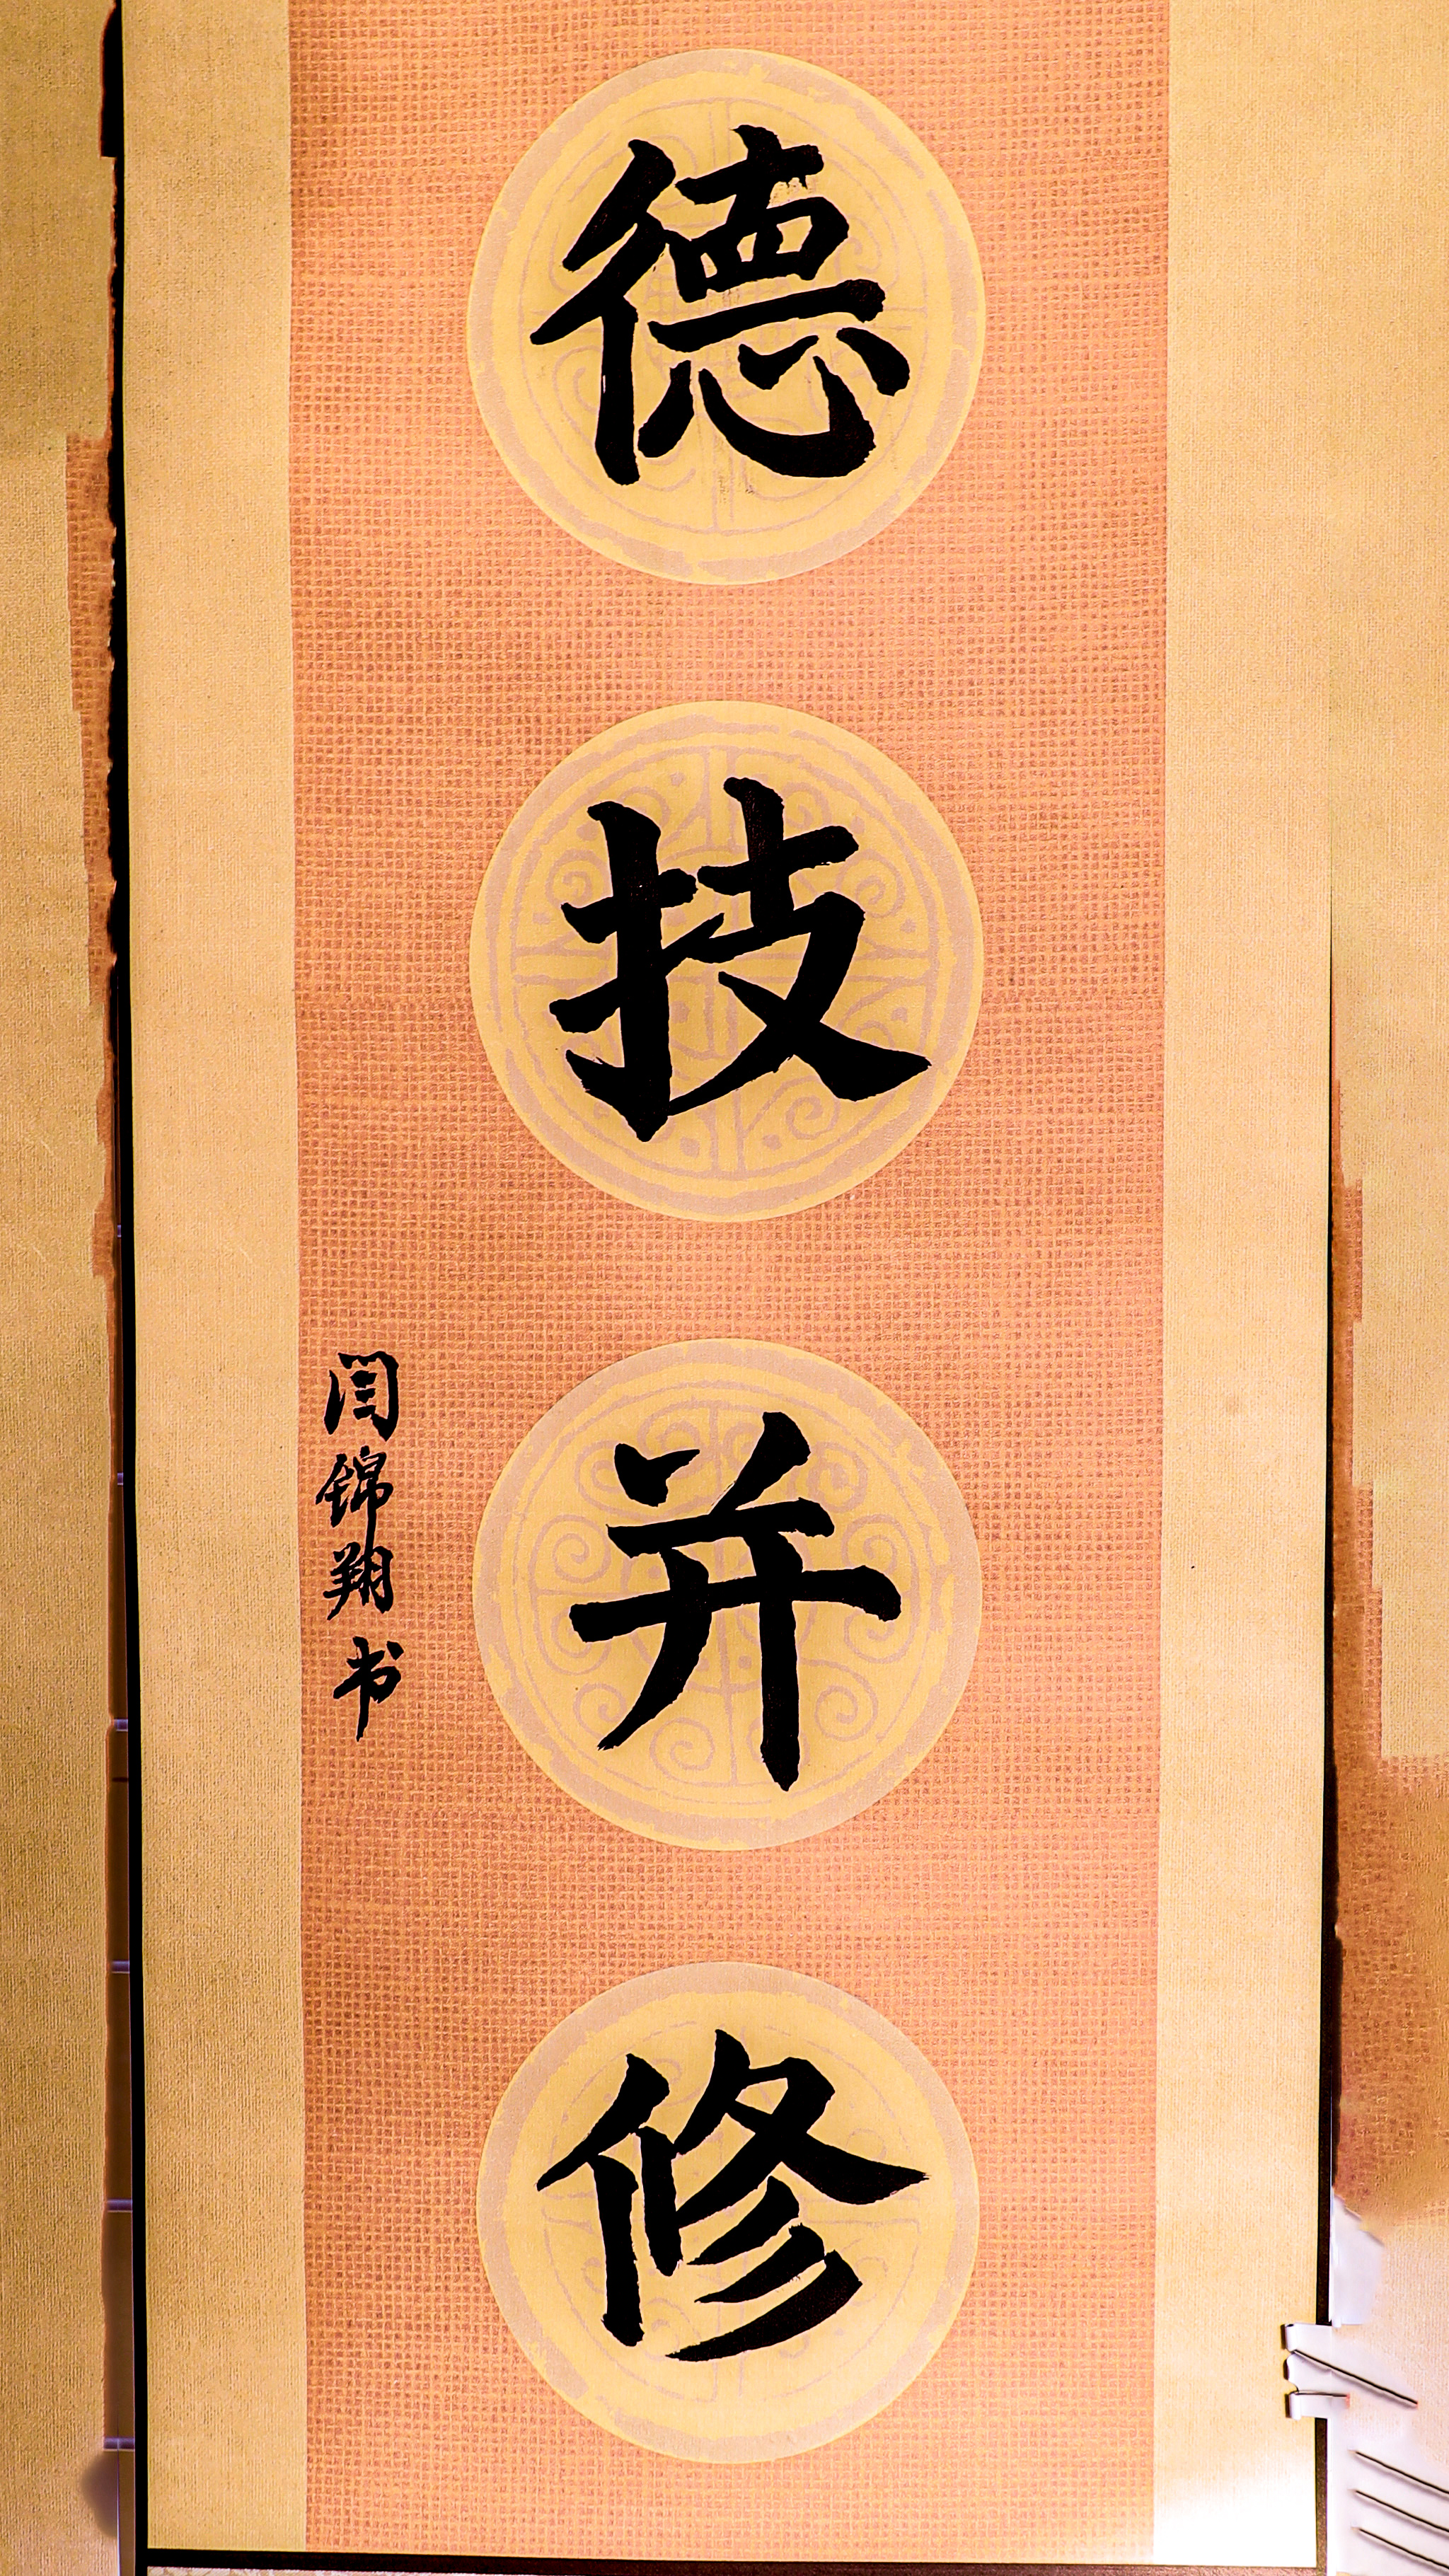 德技并修
闫锦翔书